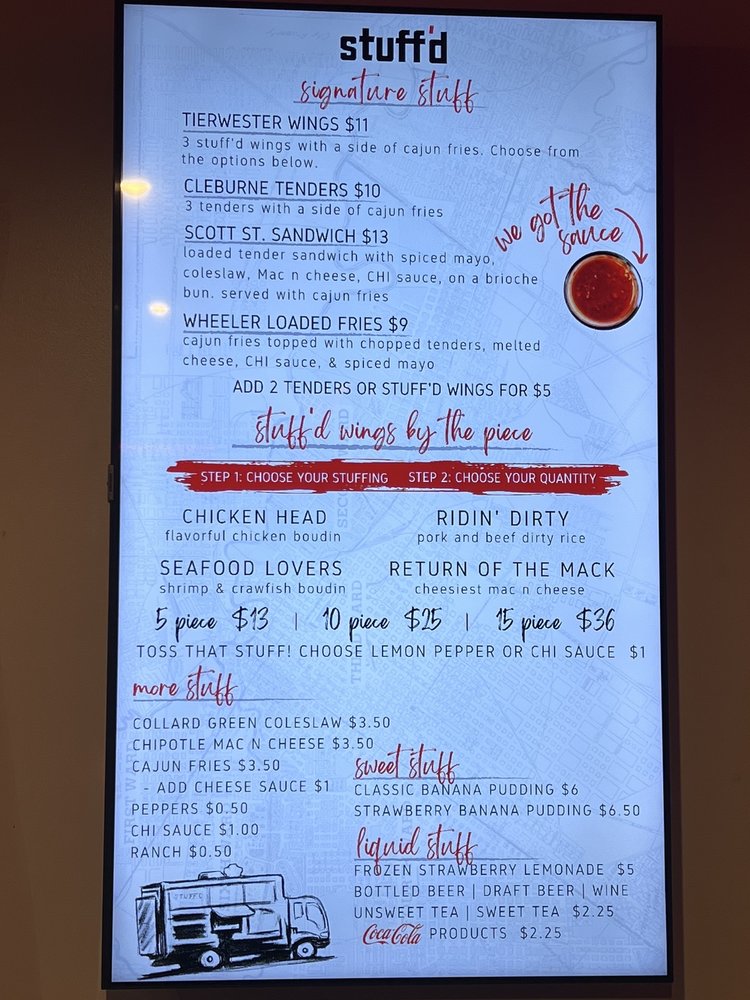 stuff'd
signature stuff
TIERWESTER WINGS $11
3 stuff'd wings with a side of cajun fries. Choose from
the options below.
CLEBURNE TENDERS $10
3 tenders with a side of cajun fries
SCOTT ST. SANDWICH $13
loaded tender sandwich with spiced mayo,
coleslaw, Mac n cheese, CHI sauce, on a brioche
bun. served with cajun fries
we got the
sauce
WHEELER LOADED FRIES $9
cajun fries topped with chopped tenders, melted
cheese, CHI sauce, & spiced mayo
ADD 2 TENDERS OR STUFF'D WINGS FOR $5
stuff'd wings by the piece
STEP 1: CHOOSE YOUR STUFFING STEP 2: CHOOSE YOUR QUANTITY
CHICKEN HEAD
flavorful chicken boudin
RIDIN' DIRTY
pork and beef dirty rice
SEAFOOD LOVERS
shrimp & crawfish boudin
RETURN OF THE MACK
cheesiest mac n cheese
5 piece $13 | 10 piece $25 | 15 piece $36
TOSS THAT STUFF! CHOOSE LEMON PEPPER OR CHI SAUCE $1
more stuff
COLLARD GREEN COLESLAW $3.50
CHIPOTLE MAC N CHEESE $3.50
CAJUN FRIES $3.50
- ADD CHEESE SAUCE $1
PEPPERS $0.50
CHI SAUCE $1.00
RANCH $0.50
sweet stuff
CLASSIC BANANA PUDDING $6
STRAWBERRY BANANA PUDDING $6.50
liquid stuff
FROZEN STRAWBERRY LEMONADE $5
BOTTLED BEER | DRAFT BEER | WINE
UNSWEET TEA | SWEET TEA $2.25
Coca-Cola PRODUCTS $2.25